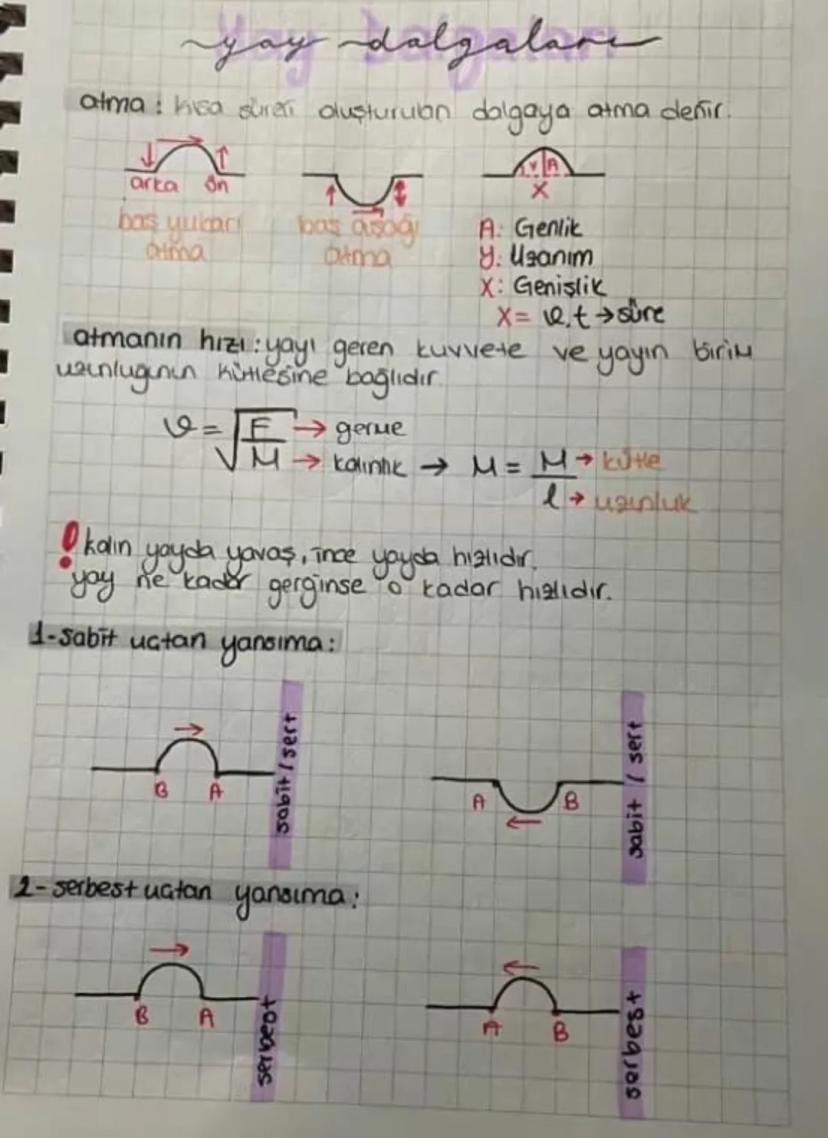 yay dalgaları
atma: kısa süreli oluşturulan dalgaya atma denir.
arka ön
baş yukarı
atma
baş aşağı
atma
y A
X
A: Genlik
y: Uzanım
X: Genişlik
X = v.t → süre
atmanın hızı: yayı geren kuvvete ve yayın birim
uzunluğunun kütlesine bağlıdır.
v = √F/M → germe
→ kalınlık → M = M/l → kütle
→ uzunluk
! kalın yayda yavaş, ince yayda hızlıdır.
yay ne kadar gerginse o kadar hızlıdır.
1-sabit uctan yansıma:
B A
sabit / sert
A B
sabit / sert
2-serbest uctan yansıma:
B A
serbest
A B
serbest